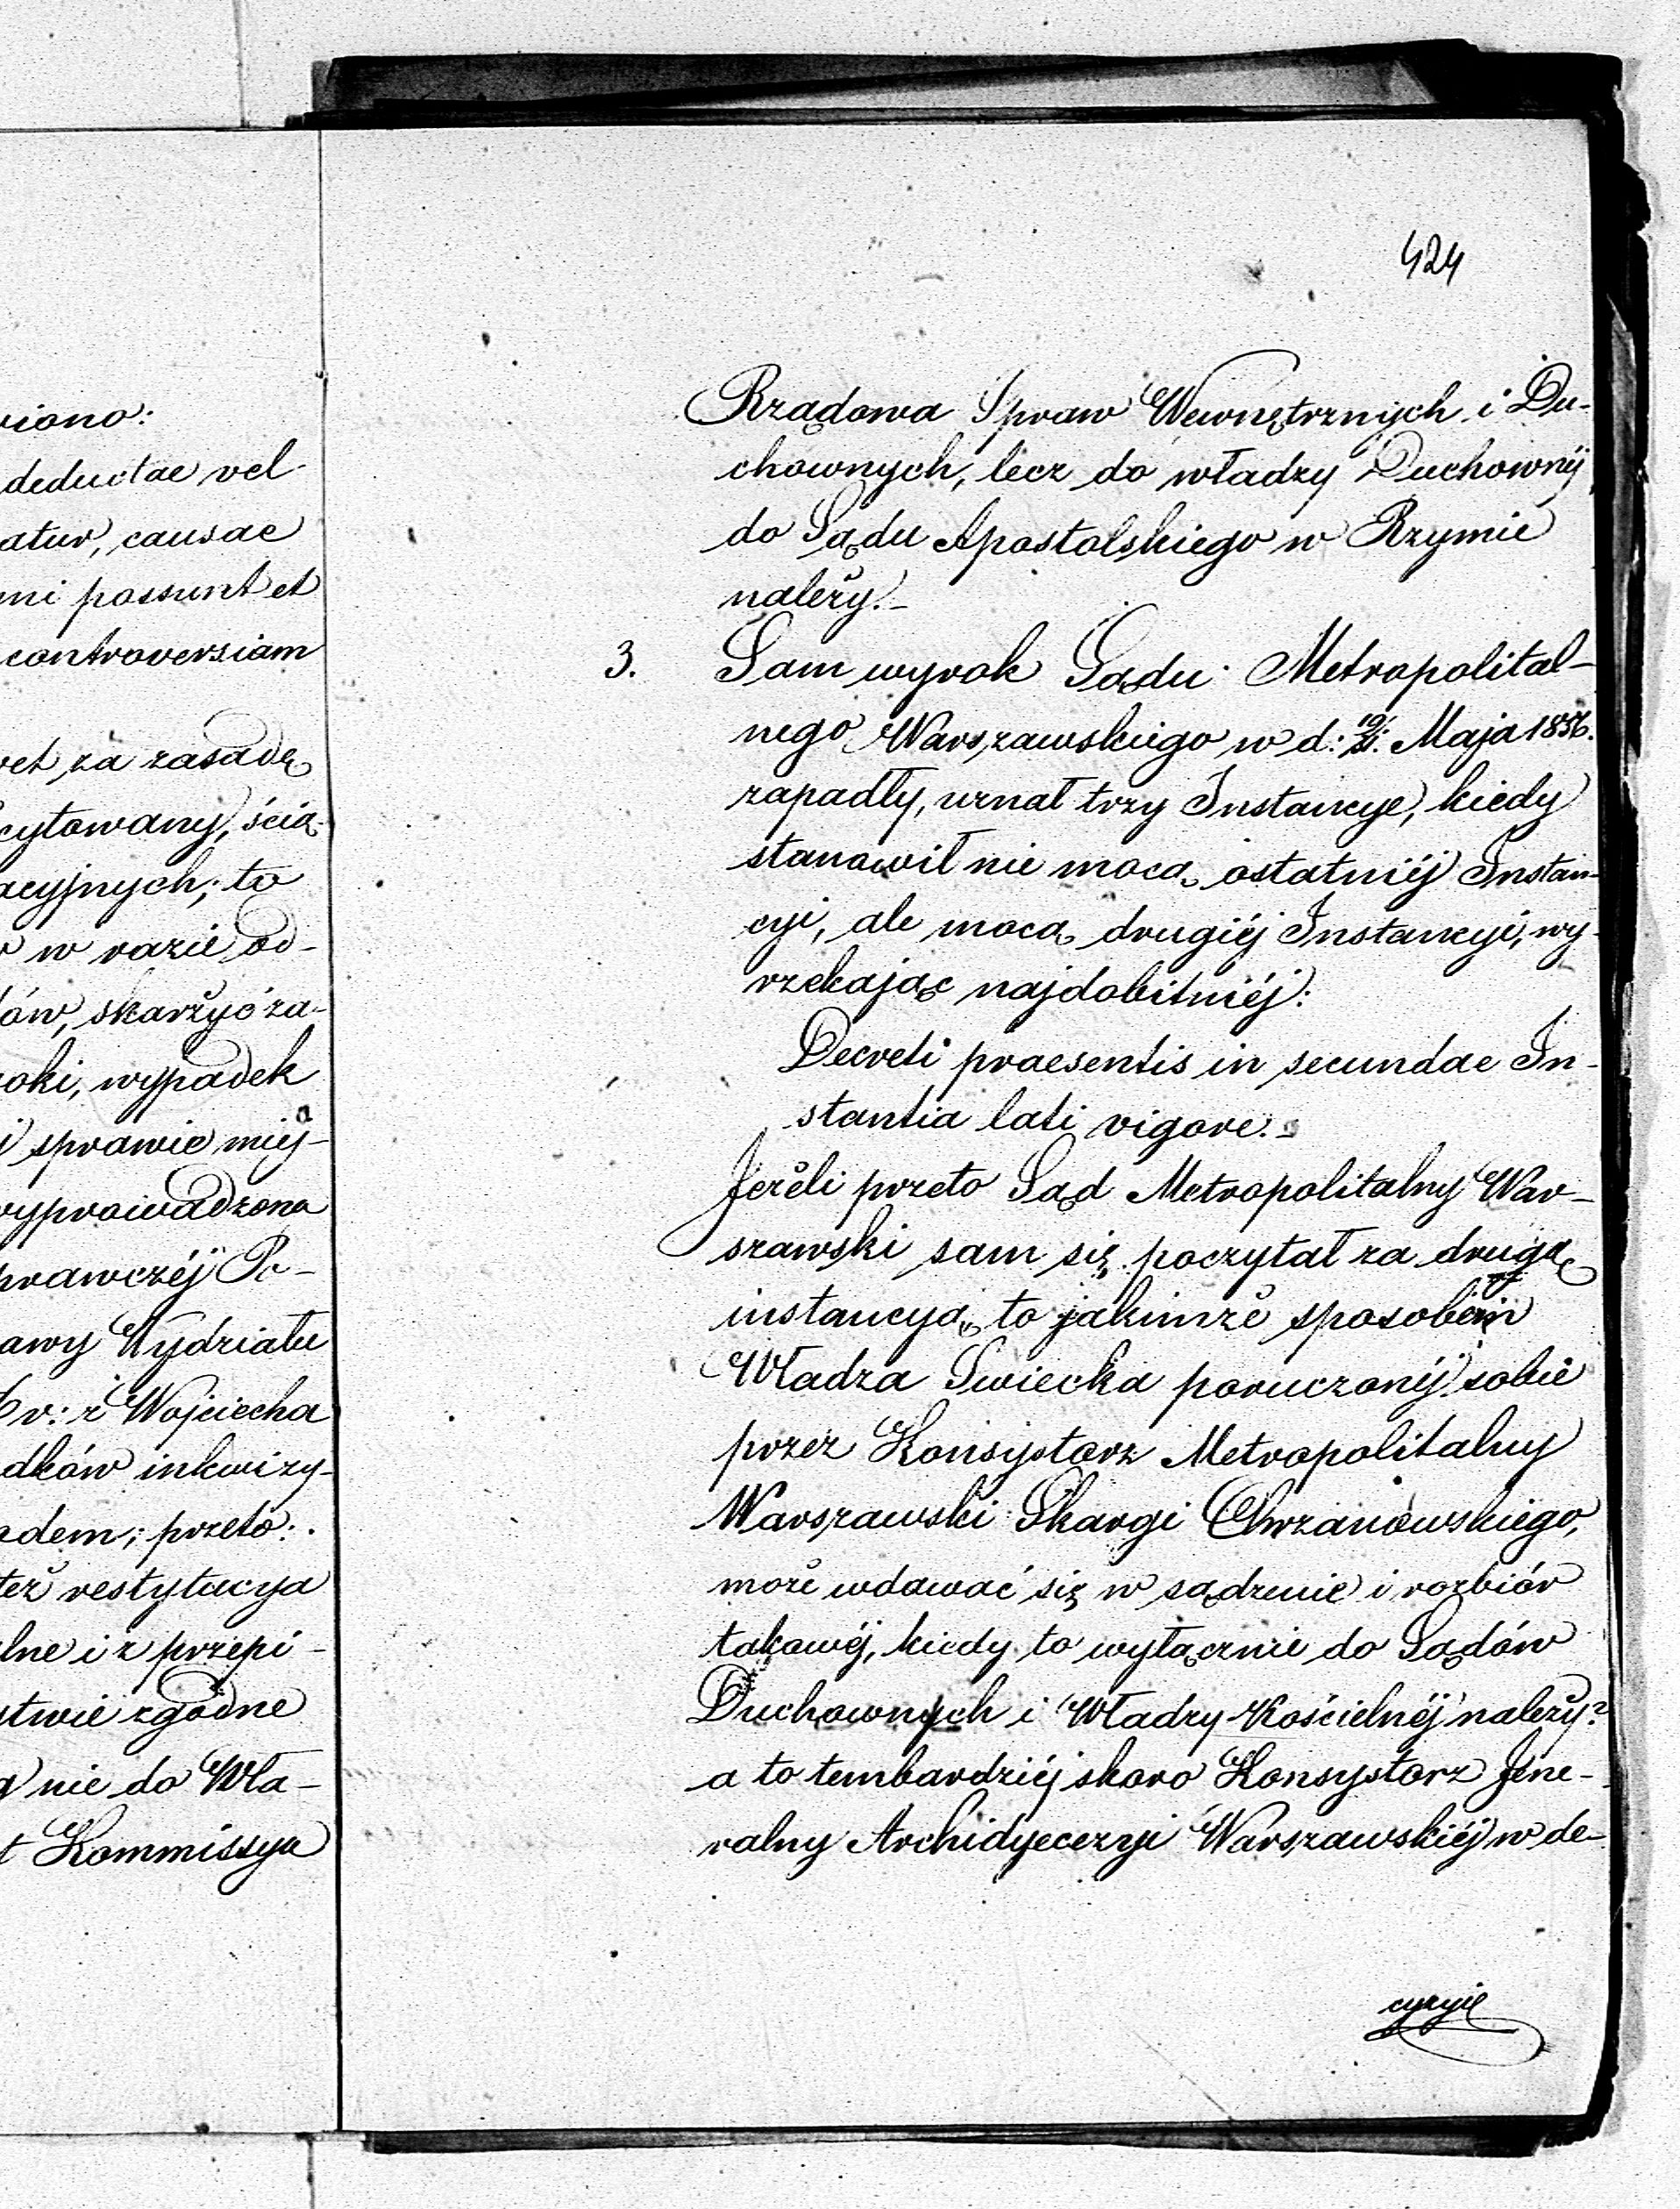 wiono:
deductae vel
atur, causae
mi possunt et
controversiam
wet za zasadę
cytowany, ścią-
acyjnych; to
w razie od-
dów, skarżyć za-
roki, wypadek
sprawie miej-
wyprowadzona
prawczéj Po-
awy Wydziału
r: z Wojciecha
dków inkwizy-
adem; przeto:
też restytucya
lne i z przepi-
stwie zgodne
nie do Wła-
t Kommissya
424
Rządowa Spraw Wewnętrznych i Du-
chownych, lecz do władzy Duchownéj
do Sądu Apostolskiego w Rzymie
należy.-
3. Sam wyrok Sądu Metropolital-
nego Warszawskiego w d: 19/31. Maja 1856.
zapadły, uznał trzy Instancye, kiedy
stanowił nie mocą ostatniéj Instan-
cyi, ale mocą drugiéj Instancyi, wy-
rzekając najdobitniéj:
Decreti praesentis in secundae In-
stantia lati vigore.-
Jeżeli przeto Sąd Metropolitalny War-
szawski sam się poczytał za drugą
instancyą, to jakimże sposobem
Władza Swiecka poruczonéj sobie
przez Konsystorz Metropolitalny
Warszawski Skargi Chrzanowskiego,
może wdawać się w sądzenie i rozbiór
takowéj, kiedy to wyłącznie do Sądów
Duchownych i Władzy Kościelnéj należy?
a to tembardziéj skoro Konsystorz Jene-
ralny Archidyecezyi Warszawskiéj w de-
cyzyi